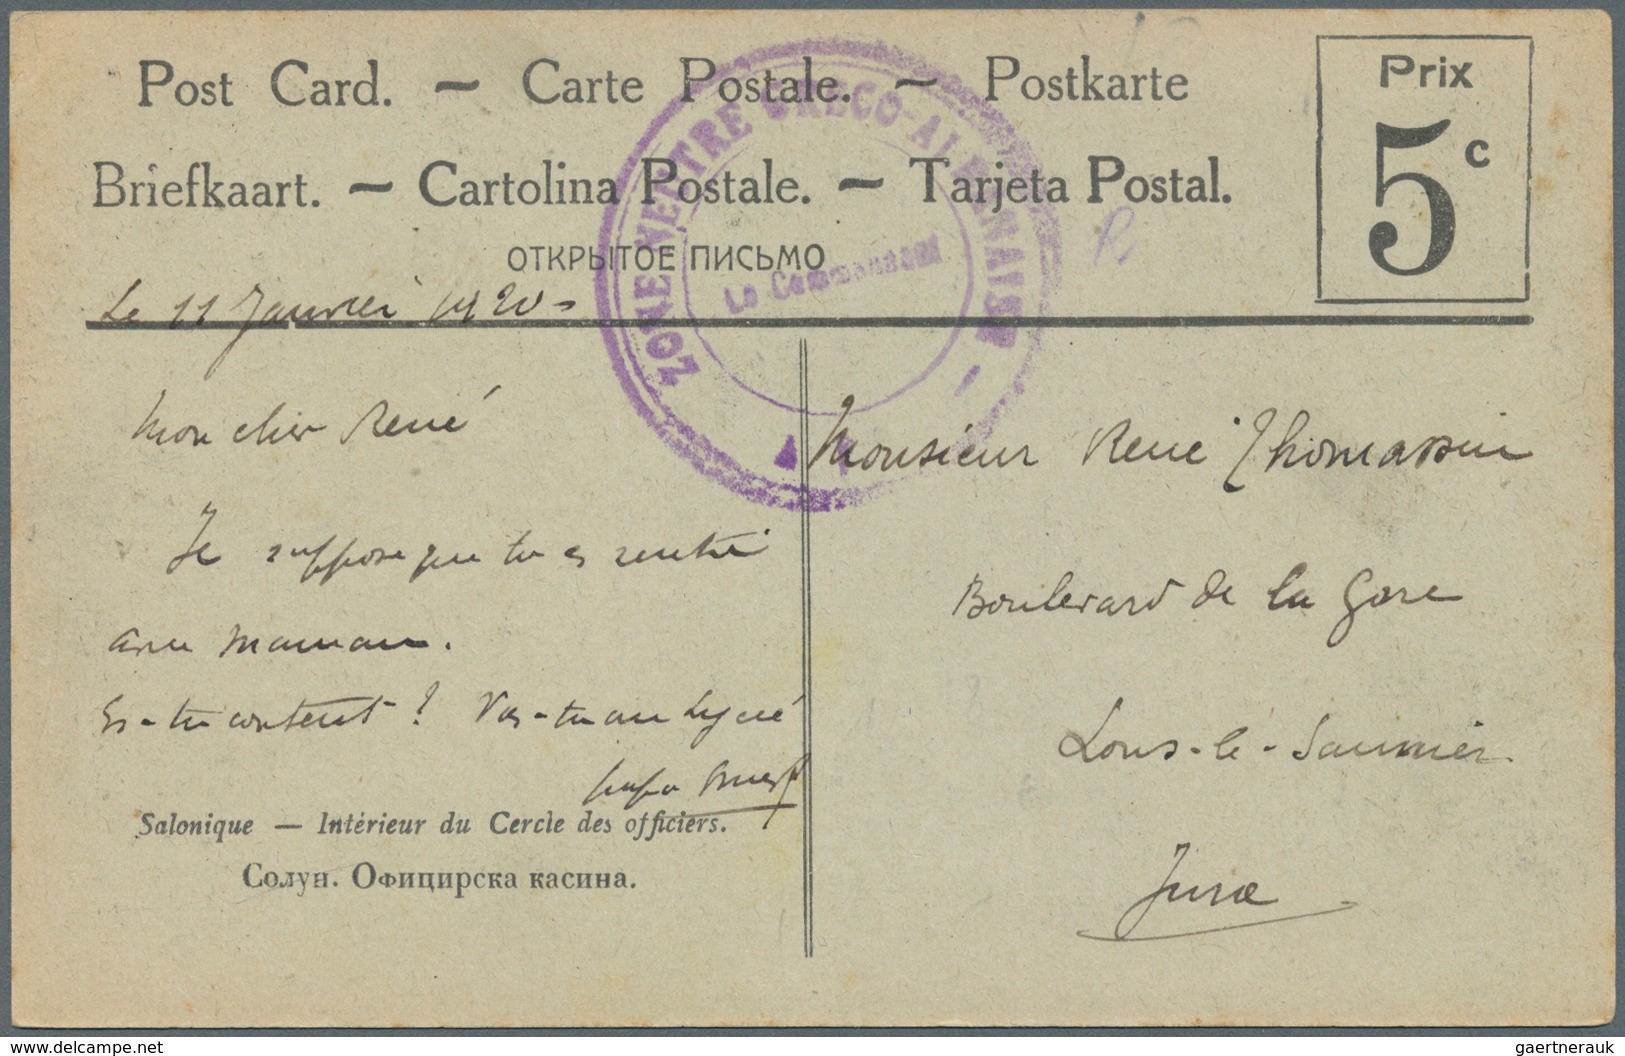 Post Card. — Carte Postale. — Postkarte
Briefkaart. — Cartolina Postale. — Tarjeta Postal.
ОТКРЫТОЕ ПИСЬМО
Prix
5 c
ZONE NEUTRE GRECO-ALBANAISE
Le Commandant
Le 11 Janvier 1920
Mon cher René
Je suppose que tu es rentré
avec maman.
Es-tu content ? Vas-tu au Lycée
papa
Salonique — Intérieur du Cercle des officiers.
Солун. Официрска касина.
Monsieur René Thomassin
Boulevard de la Gare
Lons-le-Saunier
Jura
www.delcampe.net
gaertnerauk